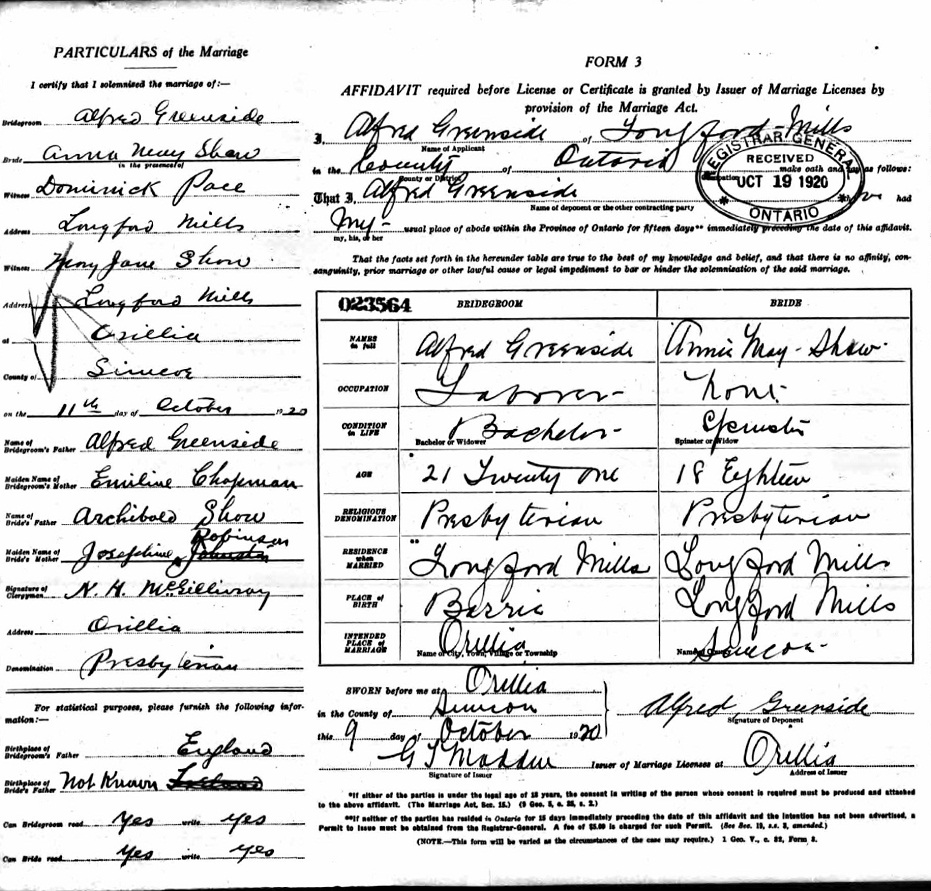 PARTICULARS of the Marriage
I certify that I solemnised the marriage of:—
Bridegroom Alfred Greenside
Bride Anna May Shaw
in the presence of
Witness Dominick Pace
Address Longford Mills
Witness Mary Jane Shaw
Address Longford Mills
at Orillia
County of Simcoe
on the 11th day of October 1920
Name of Bridegroom's Father Alfred Greenside
Maiden Name of Bridegroom's Mother Emiline Chapman
Name of Bride's Father Archibald Shaw
Robinson
Maiden Name of Bride's Mother Josephine Johnston
Signature of Clergyman N. H. McGillivray
Address Orillia
Denomination Presbyterian
For statistical purposes, please furnish the following infor-
mation:—
Birthplace of Bridegroom's Father England
Birthplace of Bride's Father Not Known Ireland
Can Bridegroom read Yes write Yes
Can Bride read Yes write Yes
FORM 3
AFFIDAVIT required before License or Certificate is granted by Issuer of Marriage Licenses by
provision of the Marriage Act.
I, Alfred Greenside of Longford Mills
Name of Applicant
in the County of Ontario make oath and say as follows:
County or District
REGISTRAR GENERAL
RECEIVED
OCT 19 1920
ONTARIO
That I, Alfred Greenside had
Name of deponent or the other contracting party
My usual place of abode within the Province of Ontario for fifteen days** immediately preceding the date of this affidavit.
my, his, or her
That the facts set forth in the hereunder table are true to the best of my knowledge and belief, and that there is no affinity, con-
sanguinity, prior marriage or other lawful cause or legal impediment to bar or hinder the solemnisation of the said marriage.
023564 BRIDEGROOM BRIDE
NAMES in full Alfred Greenside Annie May Shaw
OCCUPATION Laborer None
CONDITION in LIFE Bachelor Spinster
Bachelor or Widower Spinster or Widow
AGE 21 Twenty one 18 Eighteen
RELIGIOUS DENOMINATION Presbyterian Presbyterian
RESIDENCE when MARRIED Longford Mills Longford Mills
PLACE OF BIRTH Barrie Longford Mills
INTENDED PLACE of MARRIAGE Orillia Simcoe
Name of City, Town, Village or Township Name of County
SWORN before me at Orillia
in the County of Simcoe
this 9 day of October 1920
Alfred Greenside
Signature of Deponent
G T Madden Issuer of Marriage Licenses at Orillia
Signature of Issuer Address of Issuer
*If either of the parties is under the legal age of 18 years, the consent in writing of the person whose consent is required must be produced and attached
to the above affidavit. (The Marriage Act, Sec. 15.)
**If neither of the parties has resided in Ontario for 15 days immediately preceding the date of this affidavit and the intention has not been advertised, a
Permit to issue must be obtained from the Registrar-General. A fee of $5.00 is charged for such Permit. (See Sec. 19, s.s. 2, amended.)
(NOTE.—This form will be varied as the circumstances of the case may require.) 1 Geo. V., c. 32, Form 3.